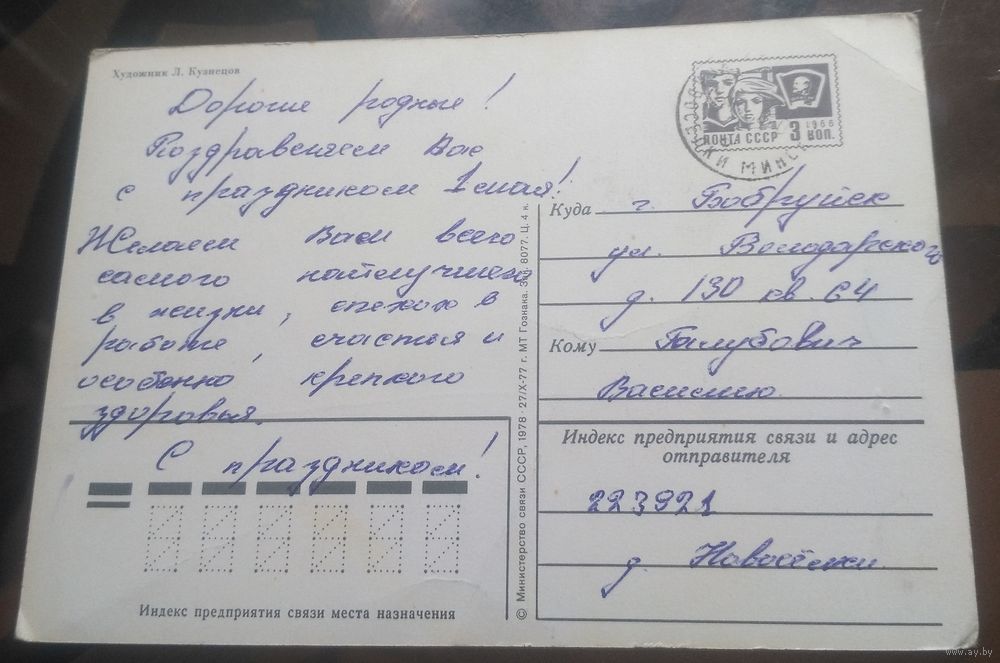 Художник Л. Кузнецов
Дорогие родные!
Поздравляем Вас
с праздником 1 мая!
Желаем Вам всего
самого наилучшего
в жизни, успехов в
работе, счастья и
особенно крепкого
здоровья.
С праздником!
Индекс предприятия связи места назначения
© Министерство связи СССР, 1978 · 27/X-77 г. МТ Гознака. Зак. 8077. Ц. 4 к.
ПОЧТА СССР 3 КОП.
1966
Куда г. Бобруйск
ул. Володарского
д. 130 кв. 64
Кому Галубович
Василию
Индекс предприятия связи и адрес
отправителя
223921
д. Новосёлки
www.ay.by